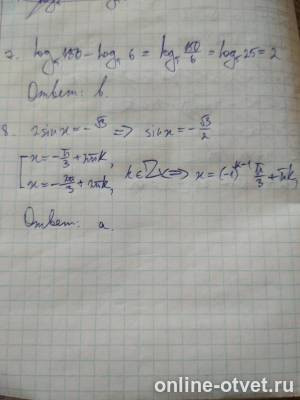 7. log₅150 - log₅6 = log₅ 150/6 = log₅25 = 2
Ответ: b.
8. 2sinx = -√3 => sinx = -√3/2
[x = -π/3 + 2πk,
x = -2π/3 + 2πk, k ∈ Z => x = (-1)^(k-1) π/3 + πk
Ответ: a.
online-otvet.ru